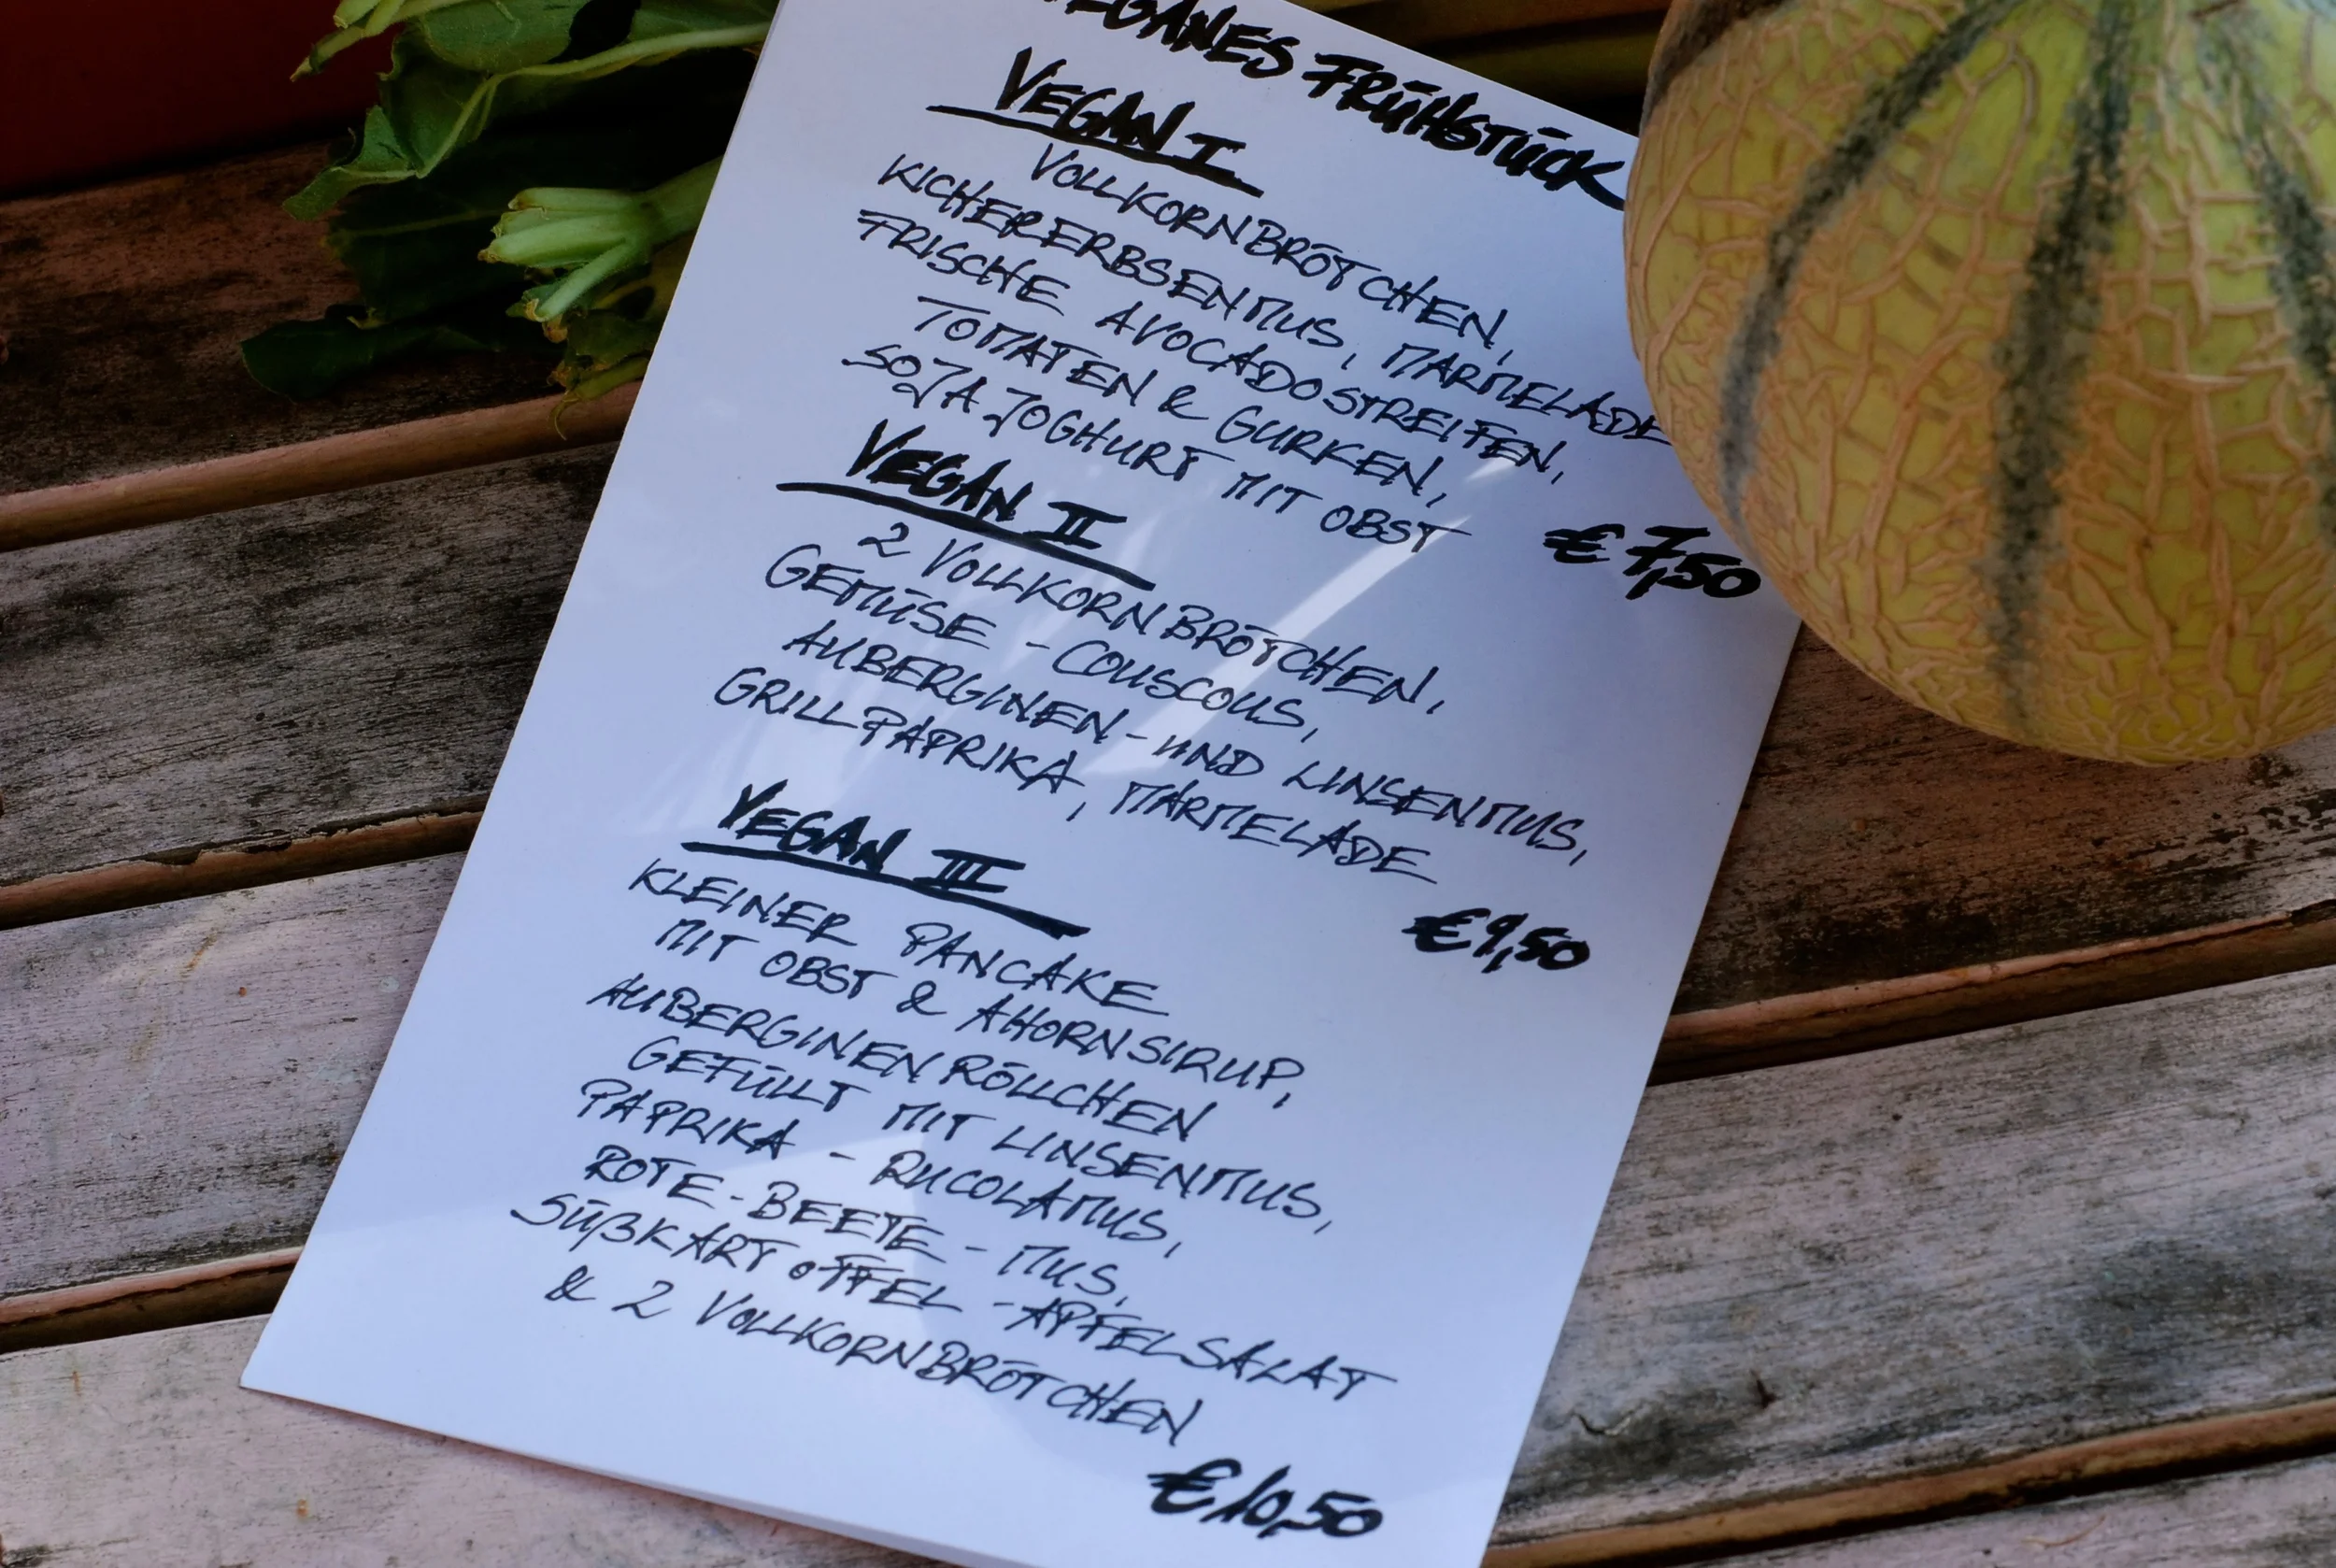 VEGANES FRÜHSTÜCK
VEGAN I
VOLLKORNBRÖTCHEN,
KICHERERBSENMUS, MARMELADE
FRISCHE AVOCADOSTREIFEN,
TOMATEN & GURKEN,
SOJA JOGHURT MIT OBST
€ 7,50
VEGAN II
2 VOLLKORNBRÖTCHEN,
GEMÜSE - COUSCOUS,
AUBERGINEN - UND LINSENMUS,
GRILLPAPRIKA, MARMELADE
€ 9,50
VEGAN III
KLEINER PANCAKE
MIT OBST & AHORNSIRUP,
AUBERGINENRÖLLCHEN
GEFÜLLT MIT LINSENMUS,
PAPRIKA - RUCOLAMUS,
ROTE-BEETE-MUS,
SÜßKARTOFFEL-APFELSALAT
& 2 VOLLKORNBRÖTCHEN
€ 10,50